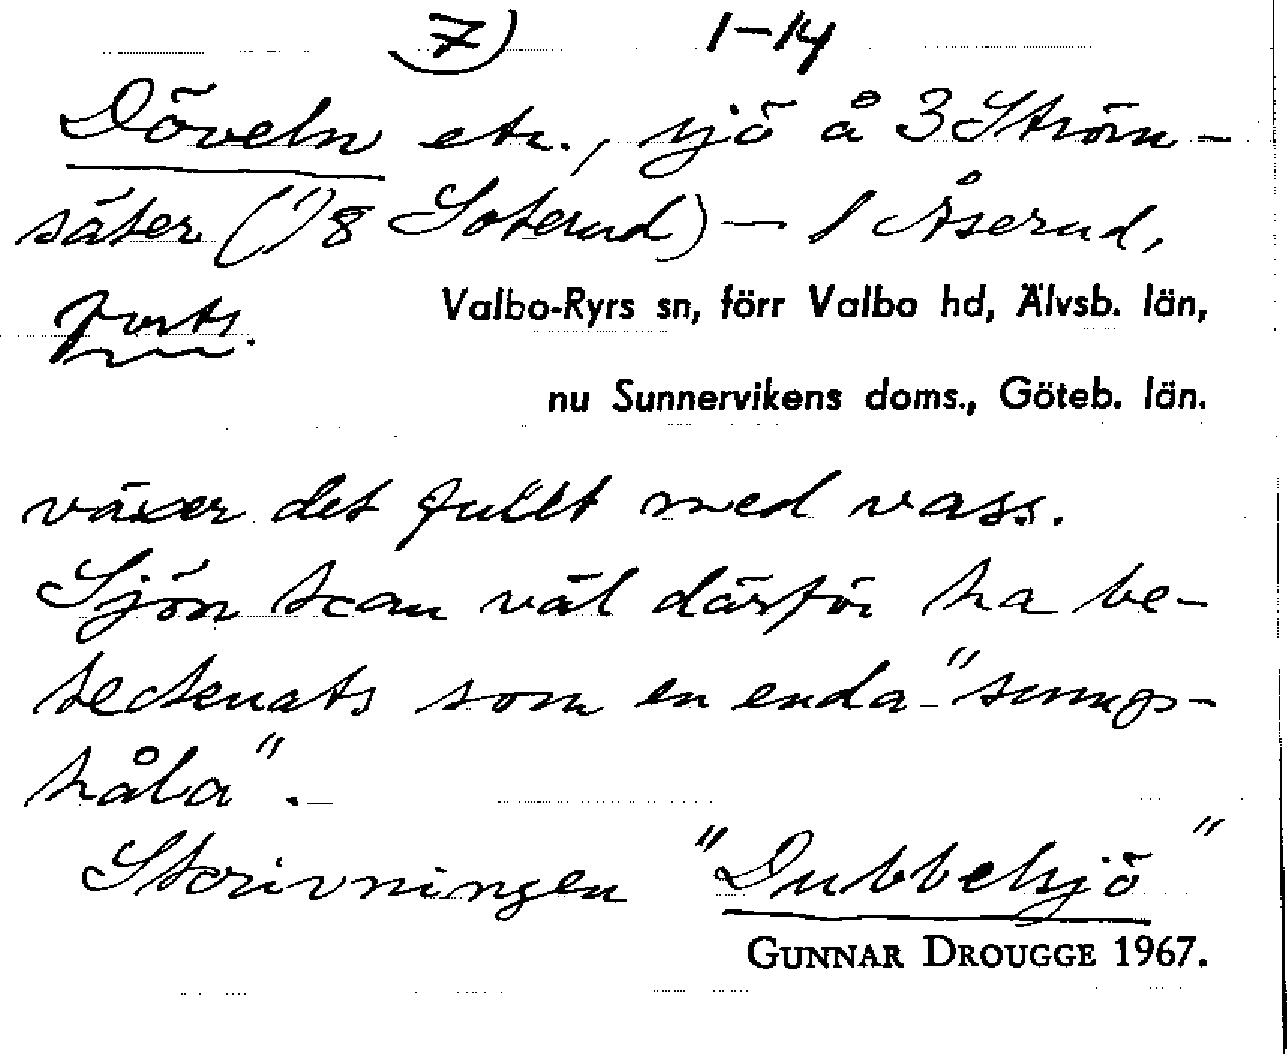 7) 1-14
Döveln etc., sjö å 3 Ström-
säter (1/8 Soterud) — 1 Åserud,
forts.
Valbo-Ryrs sn, förr Valbo hd, Älvsb. län,
nu Sunnervikens doms., Göteb. län.
växer det fullt med vass.
Sjön kan väl därför ha be-
tecknats som en enda "sump-
håla".
Skrivningen "Dubbelsjö"
GUNNAR DROUGGE 1967.